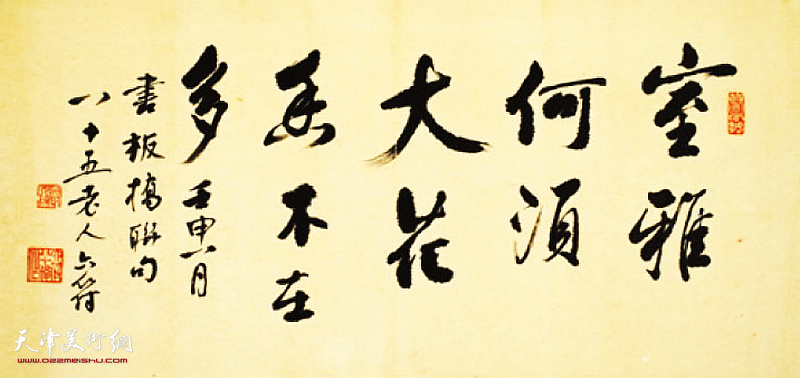 室雅
何須
大花
香不在
多壬申八月
書板橋聯句
八十五老人六符
天津美術網
www.022meishu.com